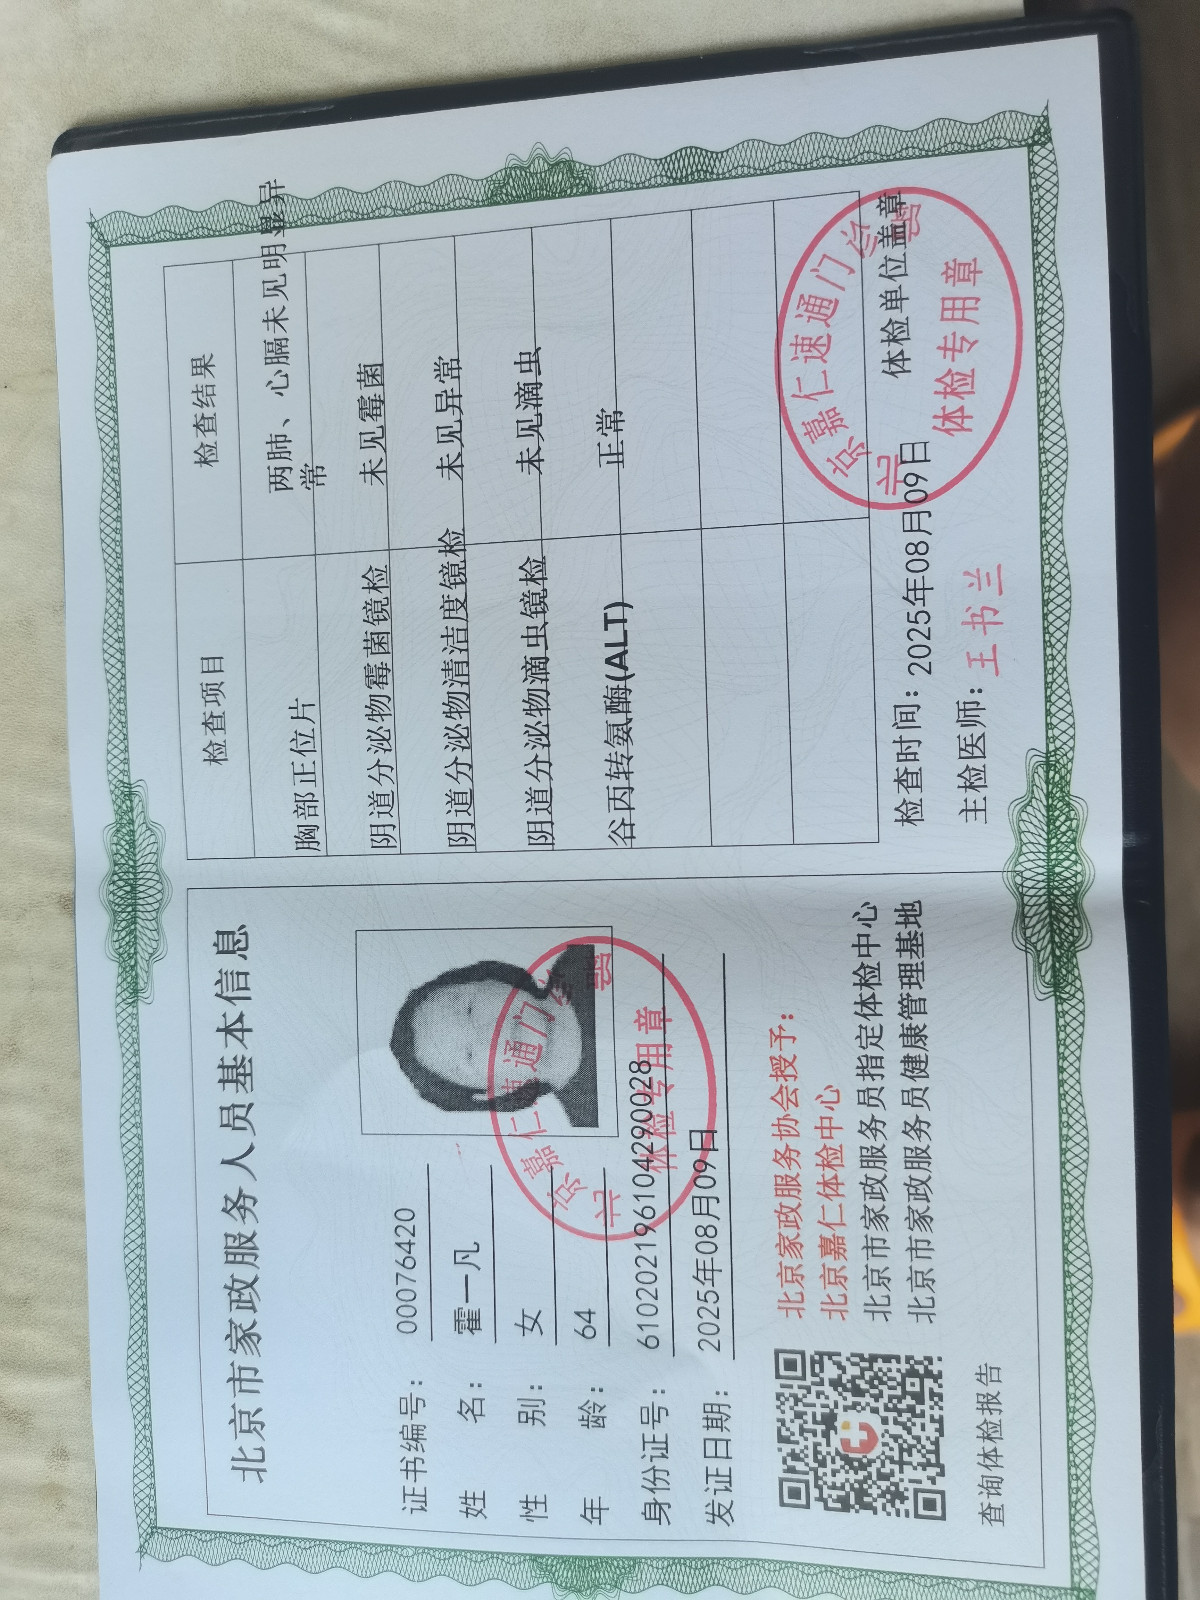 北京市家政服务人员基本信息
证书编号：00076420
姓 名：霍一凡
性 别：女
年 龄：64
身份证号：610202196104290028
发证日期：2025年08月09日
北京嘉仁速通门诊部
体检专用章
北京家政服务协会授予：
北京嘉仁体检中心
北京市家政服务员指定体检中心
北京市家政服务员健康管理基地
查询体检报告
检查项目 检查结果
胸部正位片 两肺、心膈未见明显异
常
阴道分泌物霉菌镜检 未见霉菌
阴道分泌物清洁度镜检 未见异常
阴道分泌物滴虫镜检 未见滴虫
谷丙转氨酶(ALT) 正常
检查时间：2025年08月09日 体检单位盖章
主检医师：王书兰
北京嘉仁速通门诊部
体检专用章